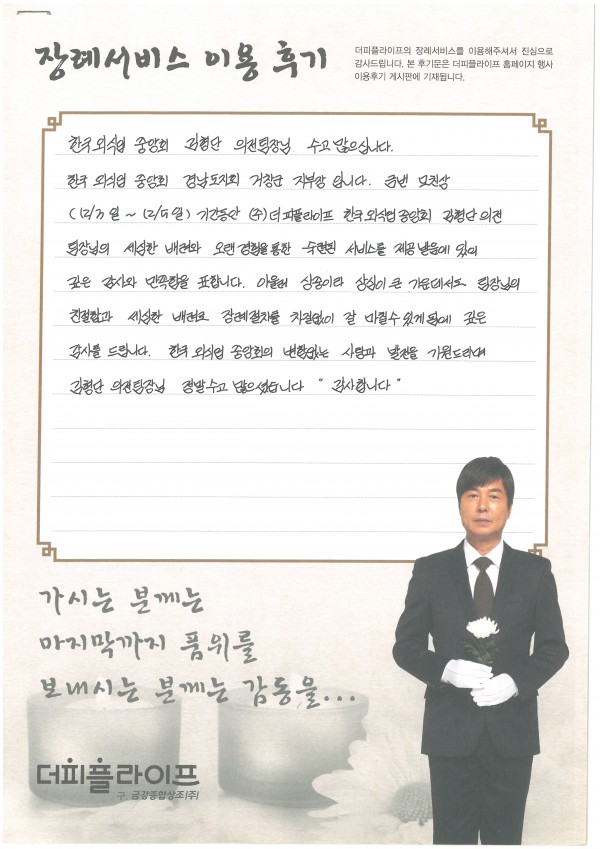 장례서비스 이용 후기
더피플라이프의 장례서비스를 이용해주셔서 진심으로
감사드립니다. 본 후기문은 더피플라이프 홈페이지 행사
이용후기 게시판에 기재됩니다.
한국 외식업 중앙회 김형단 의전팀장님 수고 많으십니다.
한국 외식업 중앙회 경남도지회 거창군 지부장 입니다. 금번 모친상
(12/3일 ~ 12/5일) 기간동안 (주)더피플라이프 한국외식업중앙회 김형단 의전
팀장님의 세심한 배려와 오랜 경험을 통한 숙련된 서비스를 제공 받음에 있어
깊은 감사와 만족함을 표합니다. 아울러 상중이라 상심이 큰 가운데서도 팀장님의
친절함과 세심한 배려로 장례절차를 차질없이 잘 마칠수 있게 됨에 깊은
감사를 드립니다. 한국 외식업 중앙회의 변함없는 사랑과 발전을 기원드리며
김형단 의전팀장님 정말 수고 많으셨습니다 " 감사합니다 "
가시는 분께는
마지막까지 품위를
보내시는 분께는 감동을...
더피플라이프
구. 금강종합상조(주)